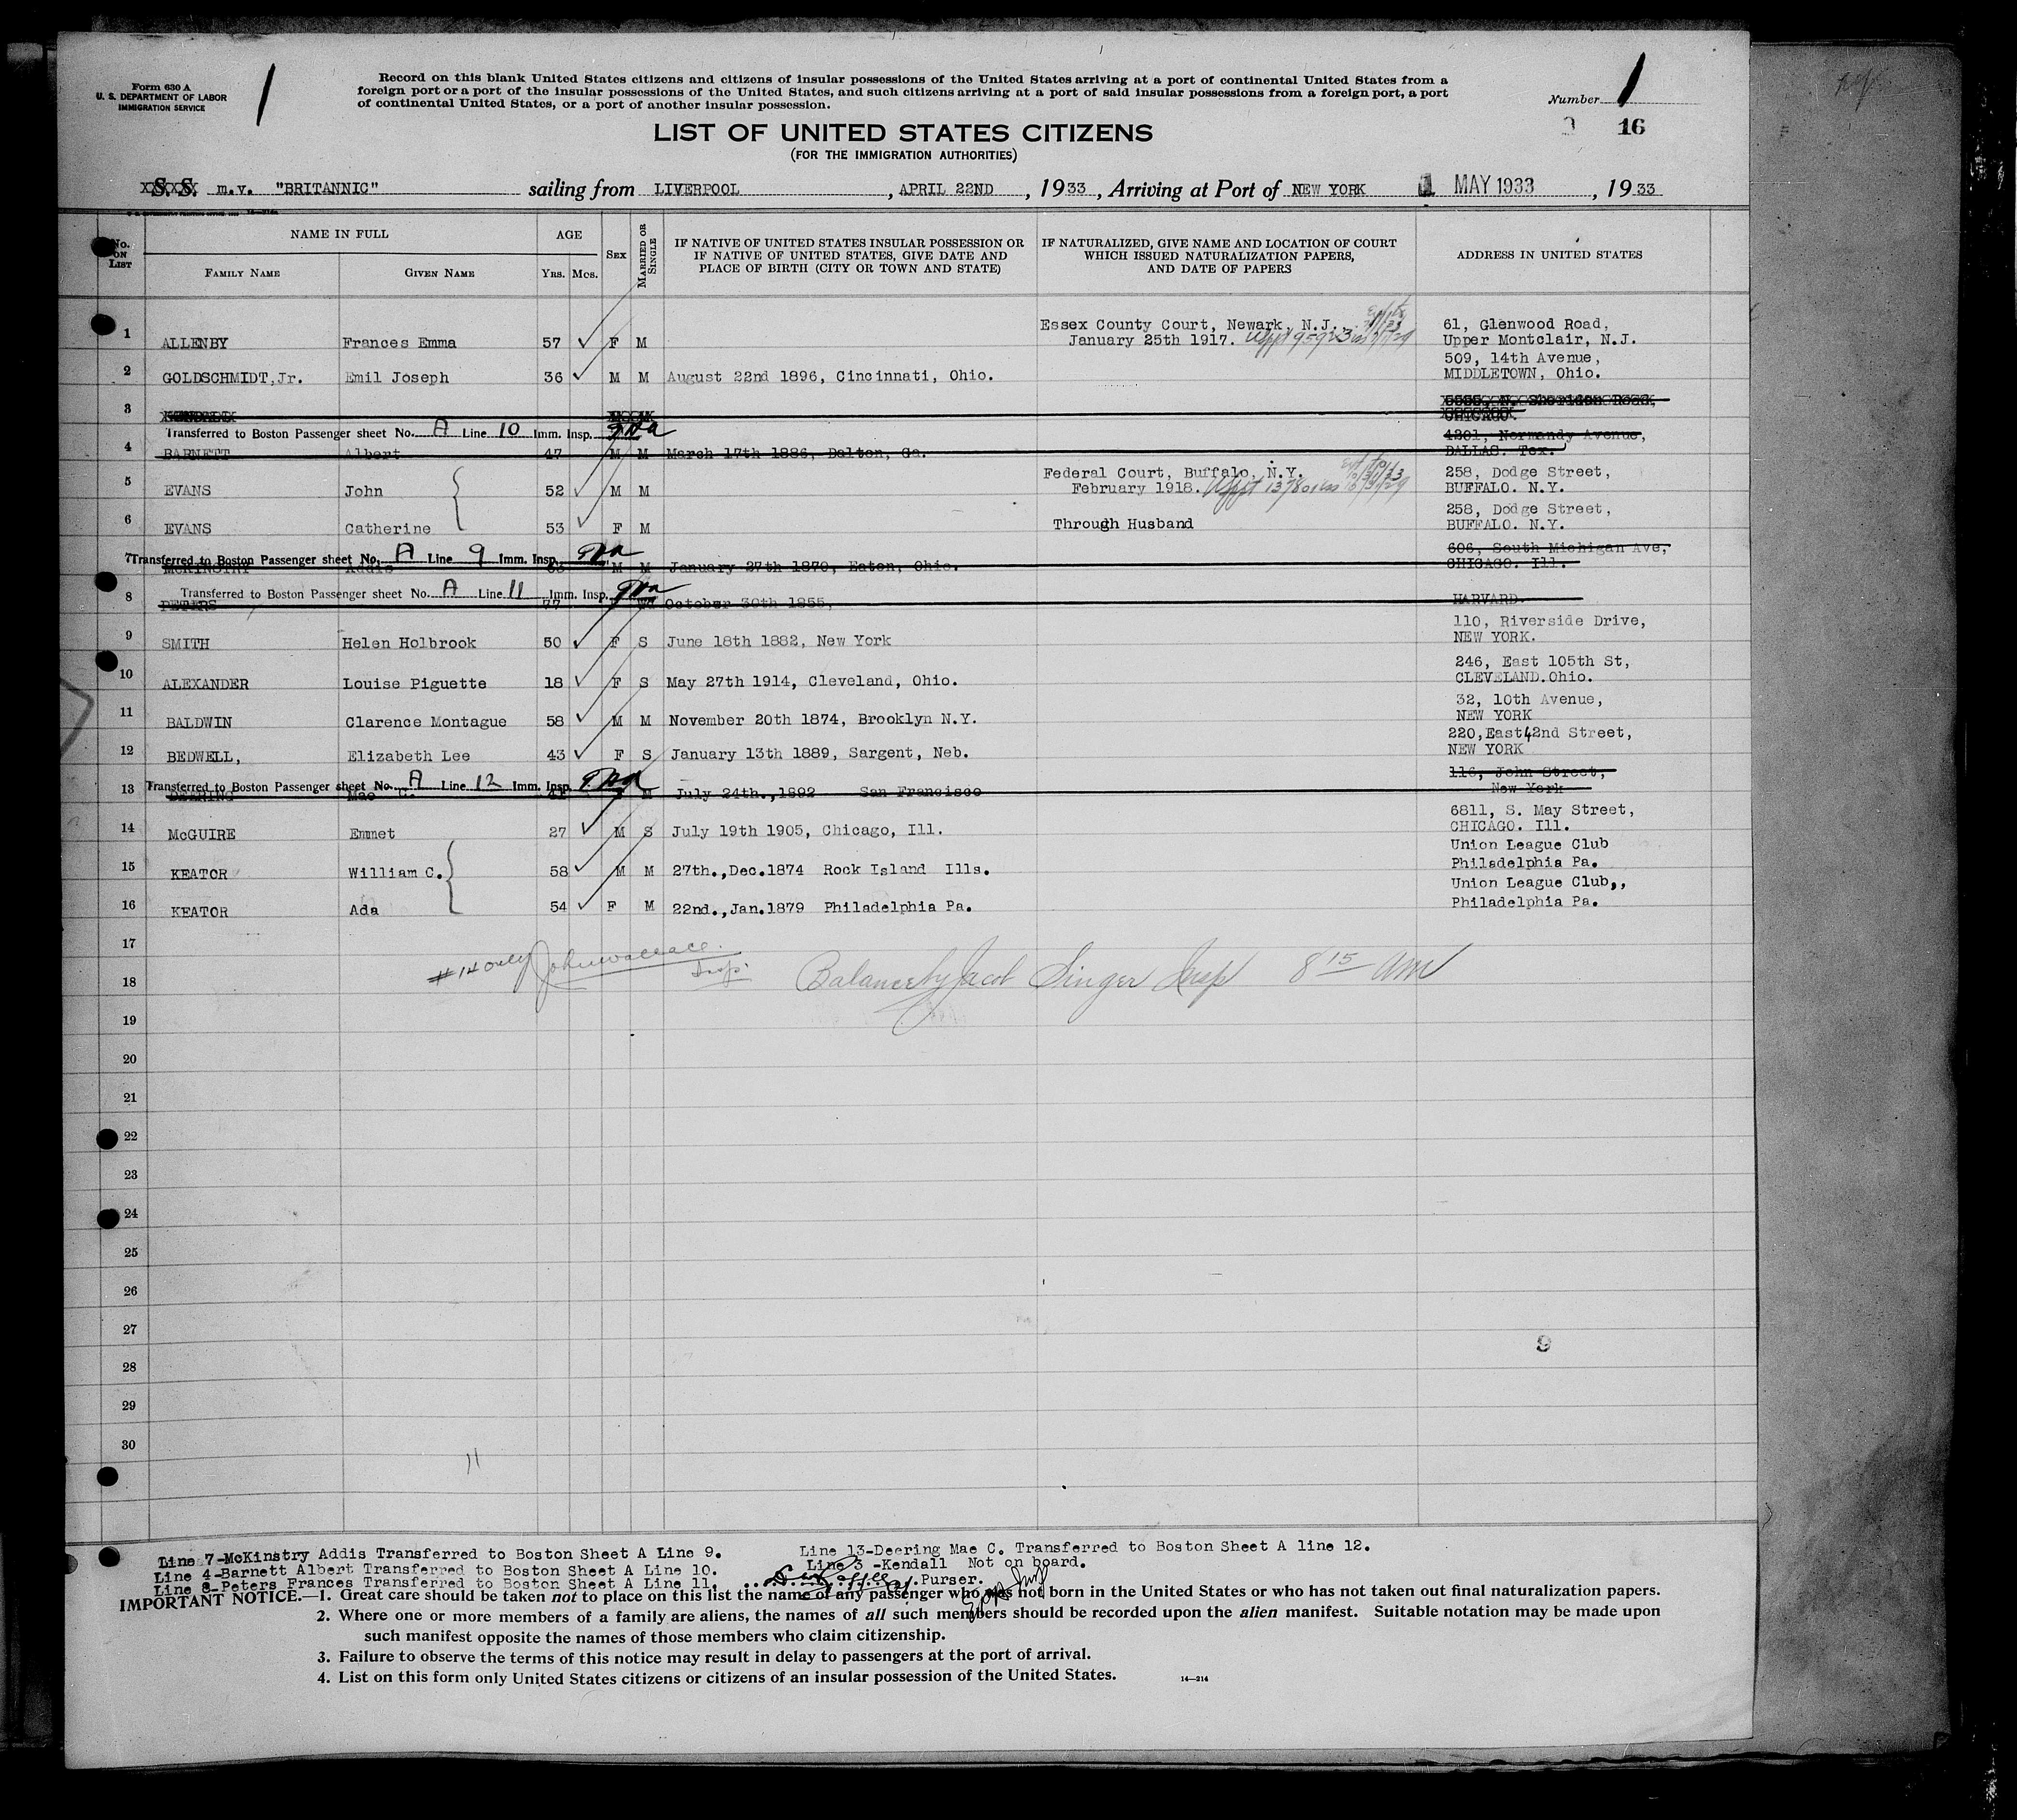 Form 630 A
U. S. DEPARTMENT OF LABOR
IMMIGRATION SERVICE
1
Record on this blank United States citizens and citizens of insular possessions of the United States arriving at a port of continental United States from a
foreign port or a port of the insular possessions of the United States, and such citizens arriving at a port of said insular possessions from a foreign port, a port
of continental United States, or a port of another insular possession.
Number 1
16
LIST OF UNITED STATES CITIZENS
(FOR THE IMMIGRATION AUTHORITIES)
S. S. m.v. "BRITANNIC" sailing from LIVERPOOL, APRIL 22ND, 1933, Arriving at Port of NEW YORK 1 MAY 1933, 1933
No. ON LIST
NAME IN FULL
FAMILY NAME
GIVEN NAME
AGE
YRS. MOS.
SEX
MARRIED OR SINGLE
IF NATIVE OF UNITED STATES INSULAR POSSESSION OR
IF NATIVE OF UNITED STATES, GIVE DATE AND
PLACE OF BIRTH (CITY OR TOWN AND STATE)
IF NATURALIZED, GIVE NAME AND LOCATION OF COURT
WHICH ISSUED NATURALIZATION PAPERS,
AND DATE OF PAPERS
ADDRESS IN UNITED STATES
1 ALLENBY Frances Emma 57 F M Essex County Court, Newark, N.J. January 25th 1917. 61, Glenwood Road, Upper Montclair, N.J.
2 GOLDSCHMIDT,Jr. Emil Joseph 36 M M August 22nd 1896, Cincinnati, Ohio. 509, 14th Avenue, MIDDLETOWN, Ohio.
3 Sheridan Road, CHICAGO
Transferred to Boston Passenger sheet No. A Line 10 Imm. Insp.
4 BARNETT Albert 47 M M March 17th 1886, Dalton, Ga. 4201, Normandy Avenue, DALLAS. Tex.
5 EVANS John 52 M M Federal Court, Buffalo, N.Y. February 1918. 258, Dodge Street, BUFFALO. N.Y.
6 EVANS Catherine 53 F M Through Husband 258, Dodge Street, BUFFALO. N.Y.
7 Transferred to Boston Passenger sheet No. A Line 9 Imm. Insp.
McKINSTRY Addis 63 M M January 27th 1870, Eaton, Ohio. 606, South Michigan Ave, CHICAGO. Ill.
Transferred to Boston Passenger sheet No. A Line 11 Imm. Insp.
8 PETERS 77 Wd October 30th 1855, HARVARD.
9 SMITH Helen Holbrook 50 F S June 18th 1882, New York 110, Riverside Drive, NEW YORK.
10 ALEXANDER Louise Piguette 18 F S May 27th 1914, Cleveland, Ohio. 246, East 105th St, CLEVELAND.Ohio.
11 BALDWIN Clarence Montague 58 M M November 20th 1874, Brooklyn N.Y. 32, 10th Avenue, NEW YORK
12 BEDWELL, Elizabeth Lee 43 F S January 13th 1889, Sargent, Neb. 220,East42nd Street, NEW YORK
Transferred to Boston Passenger sheet No. A Line 12 Imm. Insp.
13 DEERING Mae C. M July 24th.,1892 San Francisco 116, John Street, New York
14 McGUIRE Emmet 27 M S July 19th 1905, Chicago, Ill. 6811, S. May Street, CHICAGO. Ill.
15 KEATOR William C. 58 M M 27th.,Dec.1874 Rock Island Ills. Union League Club Philadelphia Pa.
16 KEATOR Ada 54 F M 22nd.,Jan.1879 Philadelphia Pa. Union League Club,, Philadelphia Pa.
17
#14 only John Wallace Insp.
18 Balance by Jacob Singer Insp 8 15 AM
19
20
21
22
23
24
25
26
27
9
28
29
30
11
Line 7-McKinstry Addis Transferred to Boston Sheet A Line 9.
Line 4-Barnett Albert Transferred to Boston Sheet A Line 10.
Line 8-Peters Frances Transferred to Boston Sheet A Line 11.
Line 13-Deering Mae C. Transferred to Boston Sheet A line 12.
Line 3 -Kendall Not on board.
Purser.
IMPORTANT NOTICE.—1. Great care should be taken not to place on this list the name of any passenger who was not born in the United States or who has not taken out final naturalization papers.
2. Where one or more members of a family are aliens, the names of all such members should be recorded upon the alien manifest. Suitable notation may be made upon
such manifest opposite the names of those members who claim citizenship.
3. Failure to observe the terms of this notice may result in delay to passengers at the port of arrival.
4. List on this form only United States citizens or citizens of an insular possession of the United States.
14—214